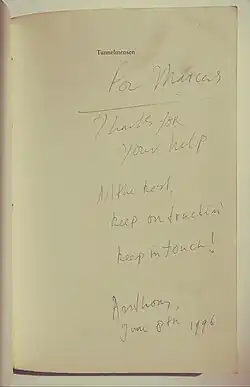 Tunnelmensen
For Marcus
Thanks for
your help
All the best,
keep on truckin'
keep in touch!
Anthony,
June 8th 1996